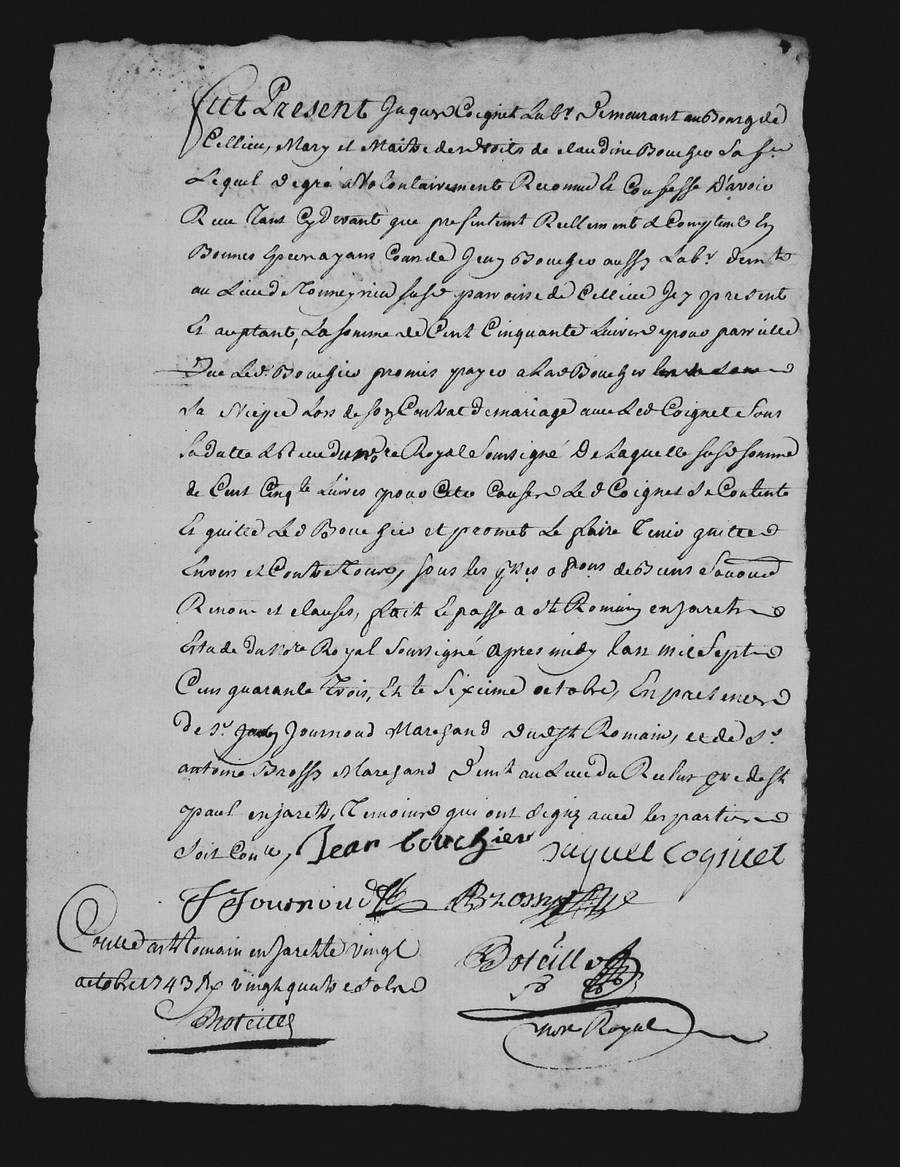 Fut Present Jaques Coignet Lab.r Demeurant au Bourg de
Cellieu, Mary et Maitre des droits de claudine Bouchier Sa f.e
Lequel De gré a Volontairement Reconnu Et Confesse D'avoir
Receu Tant Cydevant que presentemt Reellement & Comptent En
Bonnes Especes ayans Cours de Jean Bouchier aussy Lab.r demt
au Lieu de susd parroisse de Cellieu Jcy present
Et aceptant, La somme de Cent Cinquante Livres pour pareille
Que Led. Bouchier promis payer a Lad Bouchier
Sa Niepce Lors de son Contrat de mariage avec Led Coignet Sous
Sa datte & Receu du no.re Royal Soussigné De Laquelle susd somme
de Cent Cinq.te Livres pour Cette Cause Led Coignet Se Contente
Et quitte Led Bouchier et promet Le faire Tenir quitte
Envers et Contre Tous, sous les obons de Biens
Renon et clauses, fait & passé a St Romain en jarets
Estude du No.re Royal Soussigné apres midy Lan mil Sept
Cens quarante Trois, Et le Sixieme octobre, En presence
de S.r Journoud Marchand dud St Romain, et de S.r
antoine Brossy Marchand Demt au Lieu du Reclus pre de St
paul en jarets, Temoins qui ont Signé avec les parties
Soit Con.le, Jean bouchier jaques Cognet
J Journoud Brossy
Conllé a st Romain en jarest le vingt
octobre 1743 vingt quatre
Boteille
no.re Royal